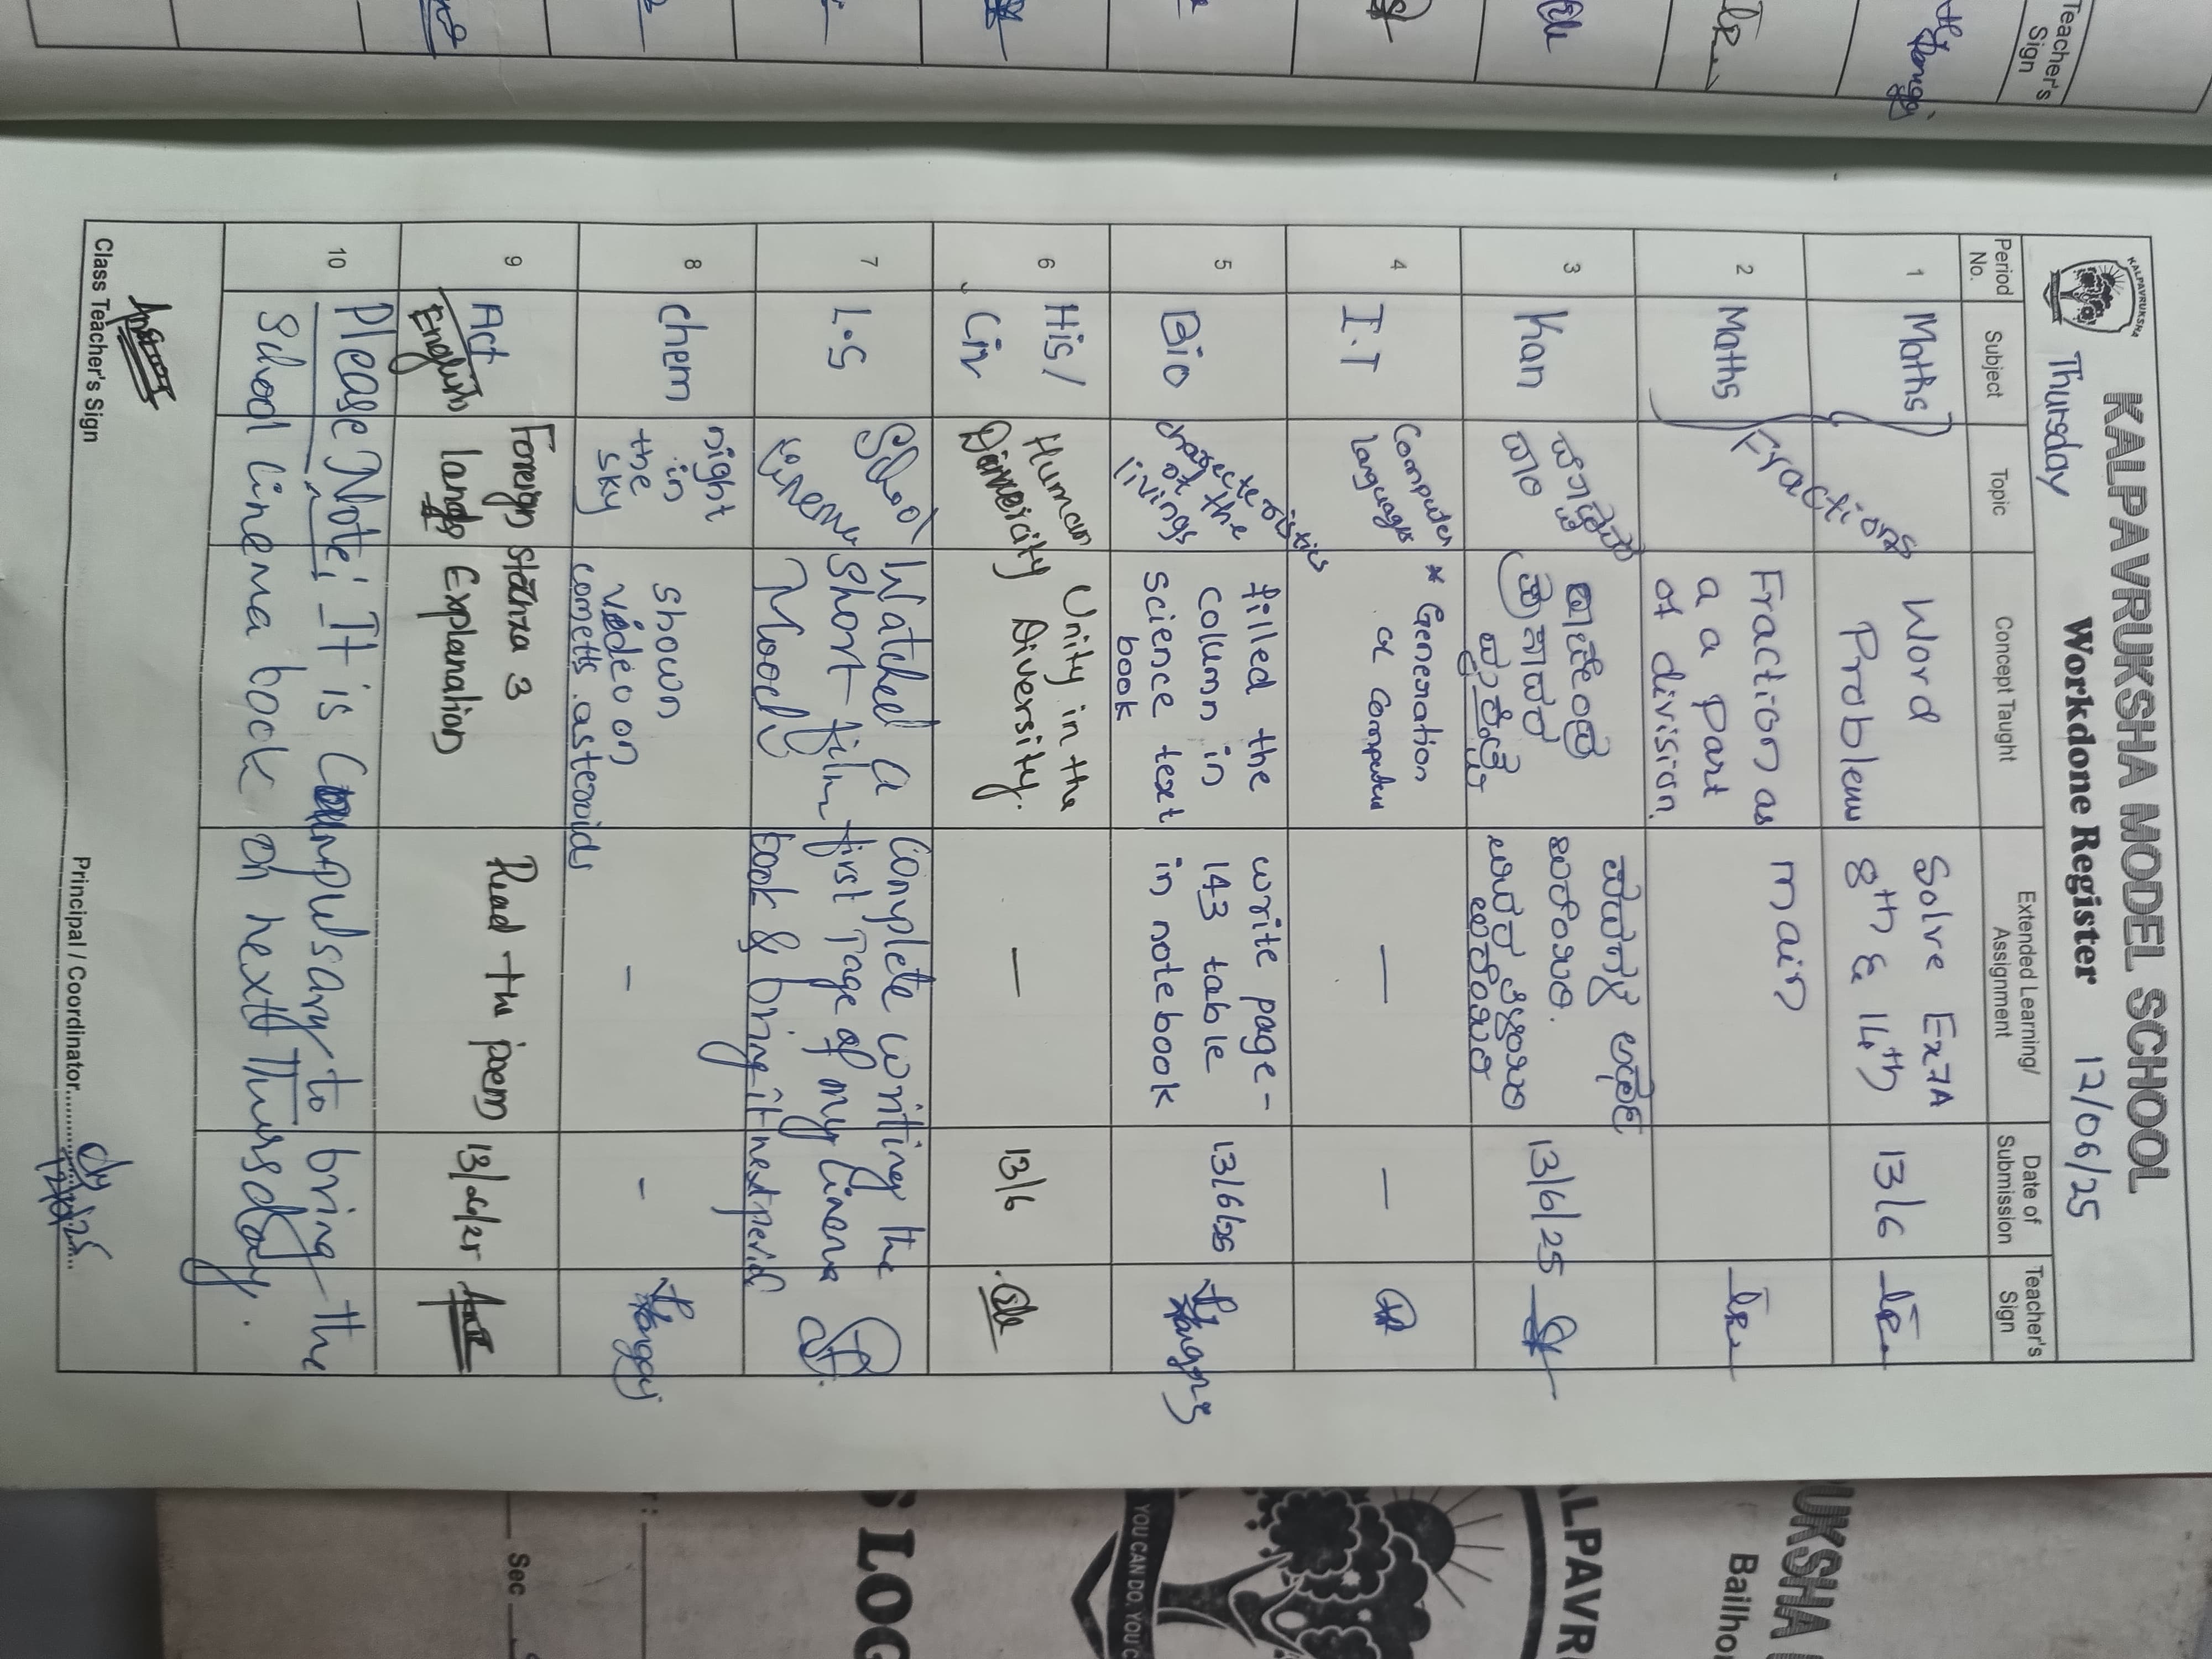 Teacher's
Sign
KALPAVRUKSHA
KALPAVRUKSHA MODEL SCHOOL
Thursday Workdone Register 12/06/25
Period No. Subject Topic Concept Taught Extended Learning/ Assignment Date of Submission Teacher's Sign
1 Maths Fractions Word Problem Solve Ex 7A 8th & 14th 13/6
2 Maths Fraction as a a part of division main
3 Kan 13/6/25
4 I.T Computer languages * Generation of computer — —
5 Bio characteristics of the livings filled the column in science text book write page- 143 table in note book 13/6/25
6 His / Civ Human Diversity Unity in the Diversity. — 13/6
7 L.S School cinema Watched a short film Moochi Complete writing the first Page of my cinema book & bring it next period
8 chem night in the sky shown video on cometts asteroids - -
9 Act English Foreign lands Stanza 3 Explanation Read the poem 13/6/25
10 Please Note:- It is Compulsary to bring the
School Cinema book on next Thursday.
Class Teacher's Sign
Principal / Coordinator
S LOG
Sec
YOU CAN DO, YOU C
ALPAVR
UKSHA
Bailho